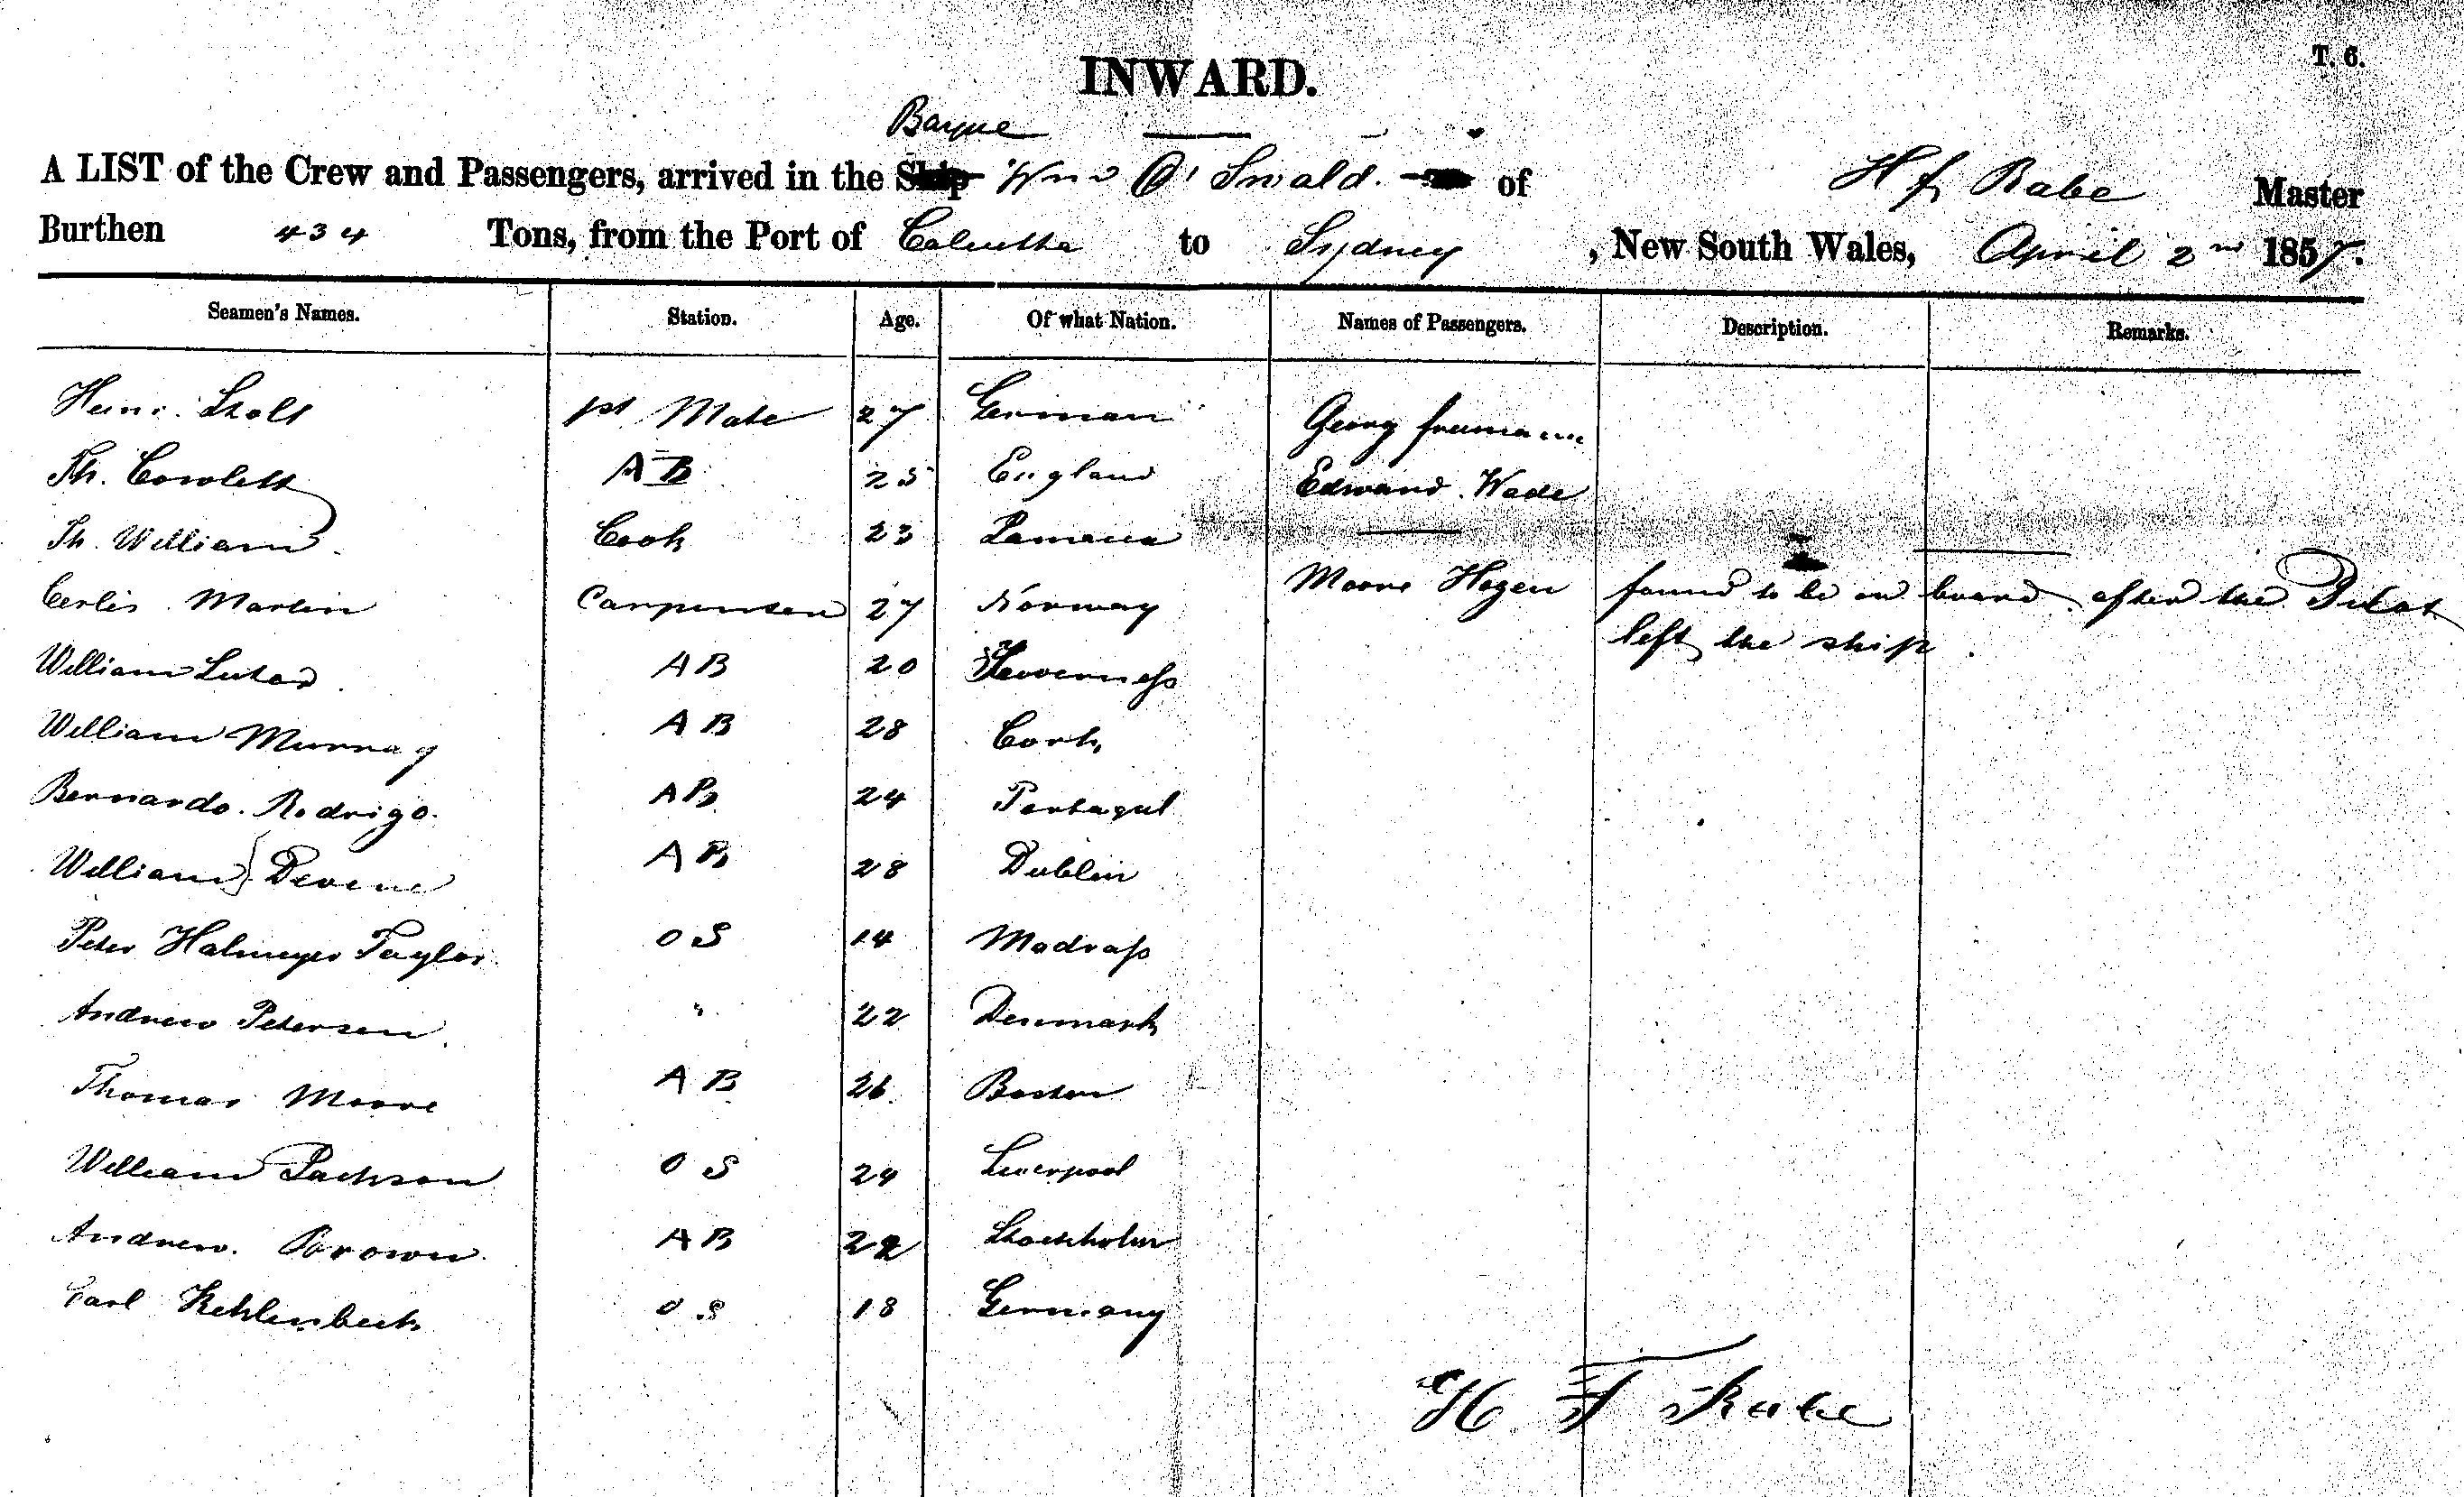 T. 6.
INWARD.
Barque
A LIST of the Crew and Passengers, arrived in the Ship Wm O' Swald. of H f Rabe Master
Burthen 434 Tons, from the Port of Calcutta to Sydney, New South Wales, April 2nd 1857.
Seamen's Names. Station. Age. Of what Nation. Names of Passengers. Description. Remarks.
Heinr. Stolt 1st Mate 27 German Georg freumann
Th. Cowlett AB 25 England Edward Wade
Th. William Cook 23 Jamaica
Cerlis Martin Carpenter 27 Norway Moore Hogen found to be on board after the Pilot
left the ship.
William AB 20
William Murray AB 28 Cork
Bernardo. Rodrigo. AB 24 Portugul
William Devene AB 28 Dublin
Peter Halmeyer Taylor. OS 14 Madrass
Andrew Petersen. " 22 Denmark
Thomas Moore AB 26 Boston
William Jackson OS 24 Liverpool
Andrew. Brown. AB 22 Stockholm
Carl Kehlenbeck OS 18 Germany
H F Rabe